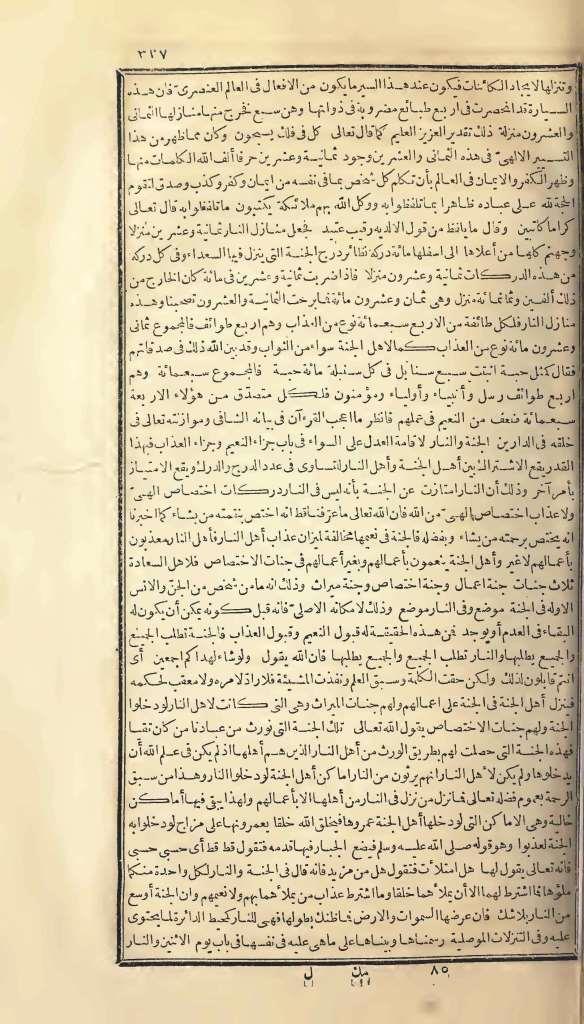 ٣٢٧
وتنزلها لايجاد الكائنات فيكون عند هذا السير ما يكون من الافعال فى العالم العنصرى فان هذه
السيارة قد انحصرت فى اربع طبائع مضروبة فى ذواتها وهن سبع فخرج منها منازلها الثمانى
والعشرون منزلة ذلك تقدير العزيز العليم كما قال تعالى كل فى فلك يسبحون وكان مما ظهر من هذا
التسيير الالهى فى هذه الثمانى والعشرين وجود ثمانية وعشرين حرفا ألف الله الكلمات منها
وظهر الكفر والايمان فى العالم بأن تكلم كل شخص بما فى نفسه من ايمان وكفر وكذب وصدق لتقوم
الحجة لله على عباده ظاهرا بما تلفظوا به ووكل الله بهم ملائكة يكتبون ما تلفظوا به قال تعالى
كراما كاتبين وقال ما يلفظ من قول الا لديه رقيب عتيد فجعل منازل النار ثمانية وعشرين منزلا
وجهنم كلها من أعلاها الى اسفلها مائة دركة نظائر درج الجنة التى ينزل فيها السعداء وفى كل دركة
من هذه الدركات ثمانية وعشرون منزلا فاذا ضربت ثمانية وعشرين فى مائة كان الخارج من
ذلك ألفين وثمانمائة منزل وهى ثمان وعشرون مائة فما برحت الثمانية والعشرون تصحبنا وهذه
منازل النار فلكل طائفة من الاربع سبعمائة نوع من العذاب وهم اربع طوائف فالمجموع ثمانى
وعشرون مائة نوع من العذاب كما لاهل الجنة سواء من الثواب وقد بين الله ذلك فى صدقاتهم
فقال كمثل حبة انبتت سبع سنابل فى كل سنبلة مائة حبة فالمجموع سبعمائة وهم
اربع طوائف رسل وأنبياء وأولياء ومؤمنون فلكل متصدق من هؤلاء الاربعة
سبعمائة ضعف من النعيم فى عملهم فانظر ما اعجب القرءان فى بيانه الشافى وموازنته تعالى فى
خلقه فى الدارين الجنة والنار لاقامة العدل على السواء فى باب جزاء النعيم وجزاء العذاب فبهذا
القدر يقع الاشتراك بين أهل الجنة وأهل النار للتساوى فى عدد الدرج والدرك ويقع الامتياز
بأمر آخر وذلك أن النار امتازت عن الجنة بأنه ليس فى النار دركات اختصاص الهى
ولا عذاب اختصاص الهى من الله فان الله تعالى ما عرّفنا قط انه اختص بنقمته من يشاء كما اخبرنا
انه يختص برحمته من يشاء وبفضله فالجنة فى نعيمها مخالفة لميزان عذاب أهل النار فأهل النار معذبون
بأعمالهم لا غير وأهل الجنة ينعمون بأعمالهم وبغير أعمالهم فى جنات الاختصاص فلاهل السعادة
ثلاث جنات جنة اعمال وجنة اختصاص وجنة ميراث وذلك انه ما من شخص من الجن والانس
الا وله فى الجنة موضع وفى النار موضع وذلك لامكانه الاصلى فانه قبل كونه يمكن أن يكون له
البقاء فى العدم أو يوجد فمن هذه الحقيقة له قبول النعيم وقبول العذاب فالجنة تطلب الجميع
والجميع يطلبها والنار تطلب الجميع والجميع يطلبها فان الله يقول ولو شاء لهداكم اجمعين أى
انتم قابلون لذلك ولكن حقت الكلمة وسبق العلم ونفذت المشيئة فلا رادّ لامره ولا معقب لحكمه
فنزل أهل الجنة فى الجنة على اعمالهم ولهم جنات الميراث وهى التى كانت لاهل النار لو دخلوا
الجنة ولهم جنات الاختصاص يقول الله تعالى تلك الجنة التى نورث من عبادنا من كان تقيا
فهذه الجنة التى حصلت لهم بطريق الورث من أهل النار الذين هم أهلها اذ لم يكن فى علم الله أن
يدخلوها ولم يكن لأهل النار انهم يرثون من النار اماكن أهل الجنة لو دخلوا النار وهذا من سبق
الرحمة بعموم فضله تعالى فما نزل من نزل فى النار من أهلها الا بأعمالهم ولهذا يبقى فيها أماكن
خالية وهى الاماكن التى لو دخلها أهل الجنة عمروها فيخلق الله خلقا يعمرونها على مزاج لو دخلوا به
الجنة لعذبوا وهو قوله صلى الله عليه وسلم فيضع الجبار فيها قدمه فتقول قط قط أى حسبى حسبى
فانه تعالى يقول لها هل امتلأت فتقول هل من مزيد فانه قال فى الجنة والنار لكل واحدة منكما
ملؤها فما اشترط لهما الا أن يملأهما خلقا وما اشترط عذاب من يملأهما بهم ولا نعيمهم وان الجنة أوسع
من النار بلا شك فان عرضها السموات والارض فما ظنك بطولها فهى للنار كمحيط الدائرة لما يحتوى
عليه وفى التنزلات الموصلية رسمناها وبيناها على ما هى عليه فى نفسها فى باب يوم الاثنين والنار
٨٥ مك ل